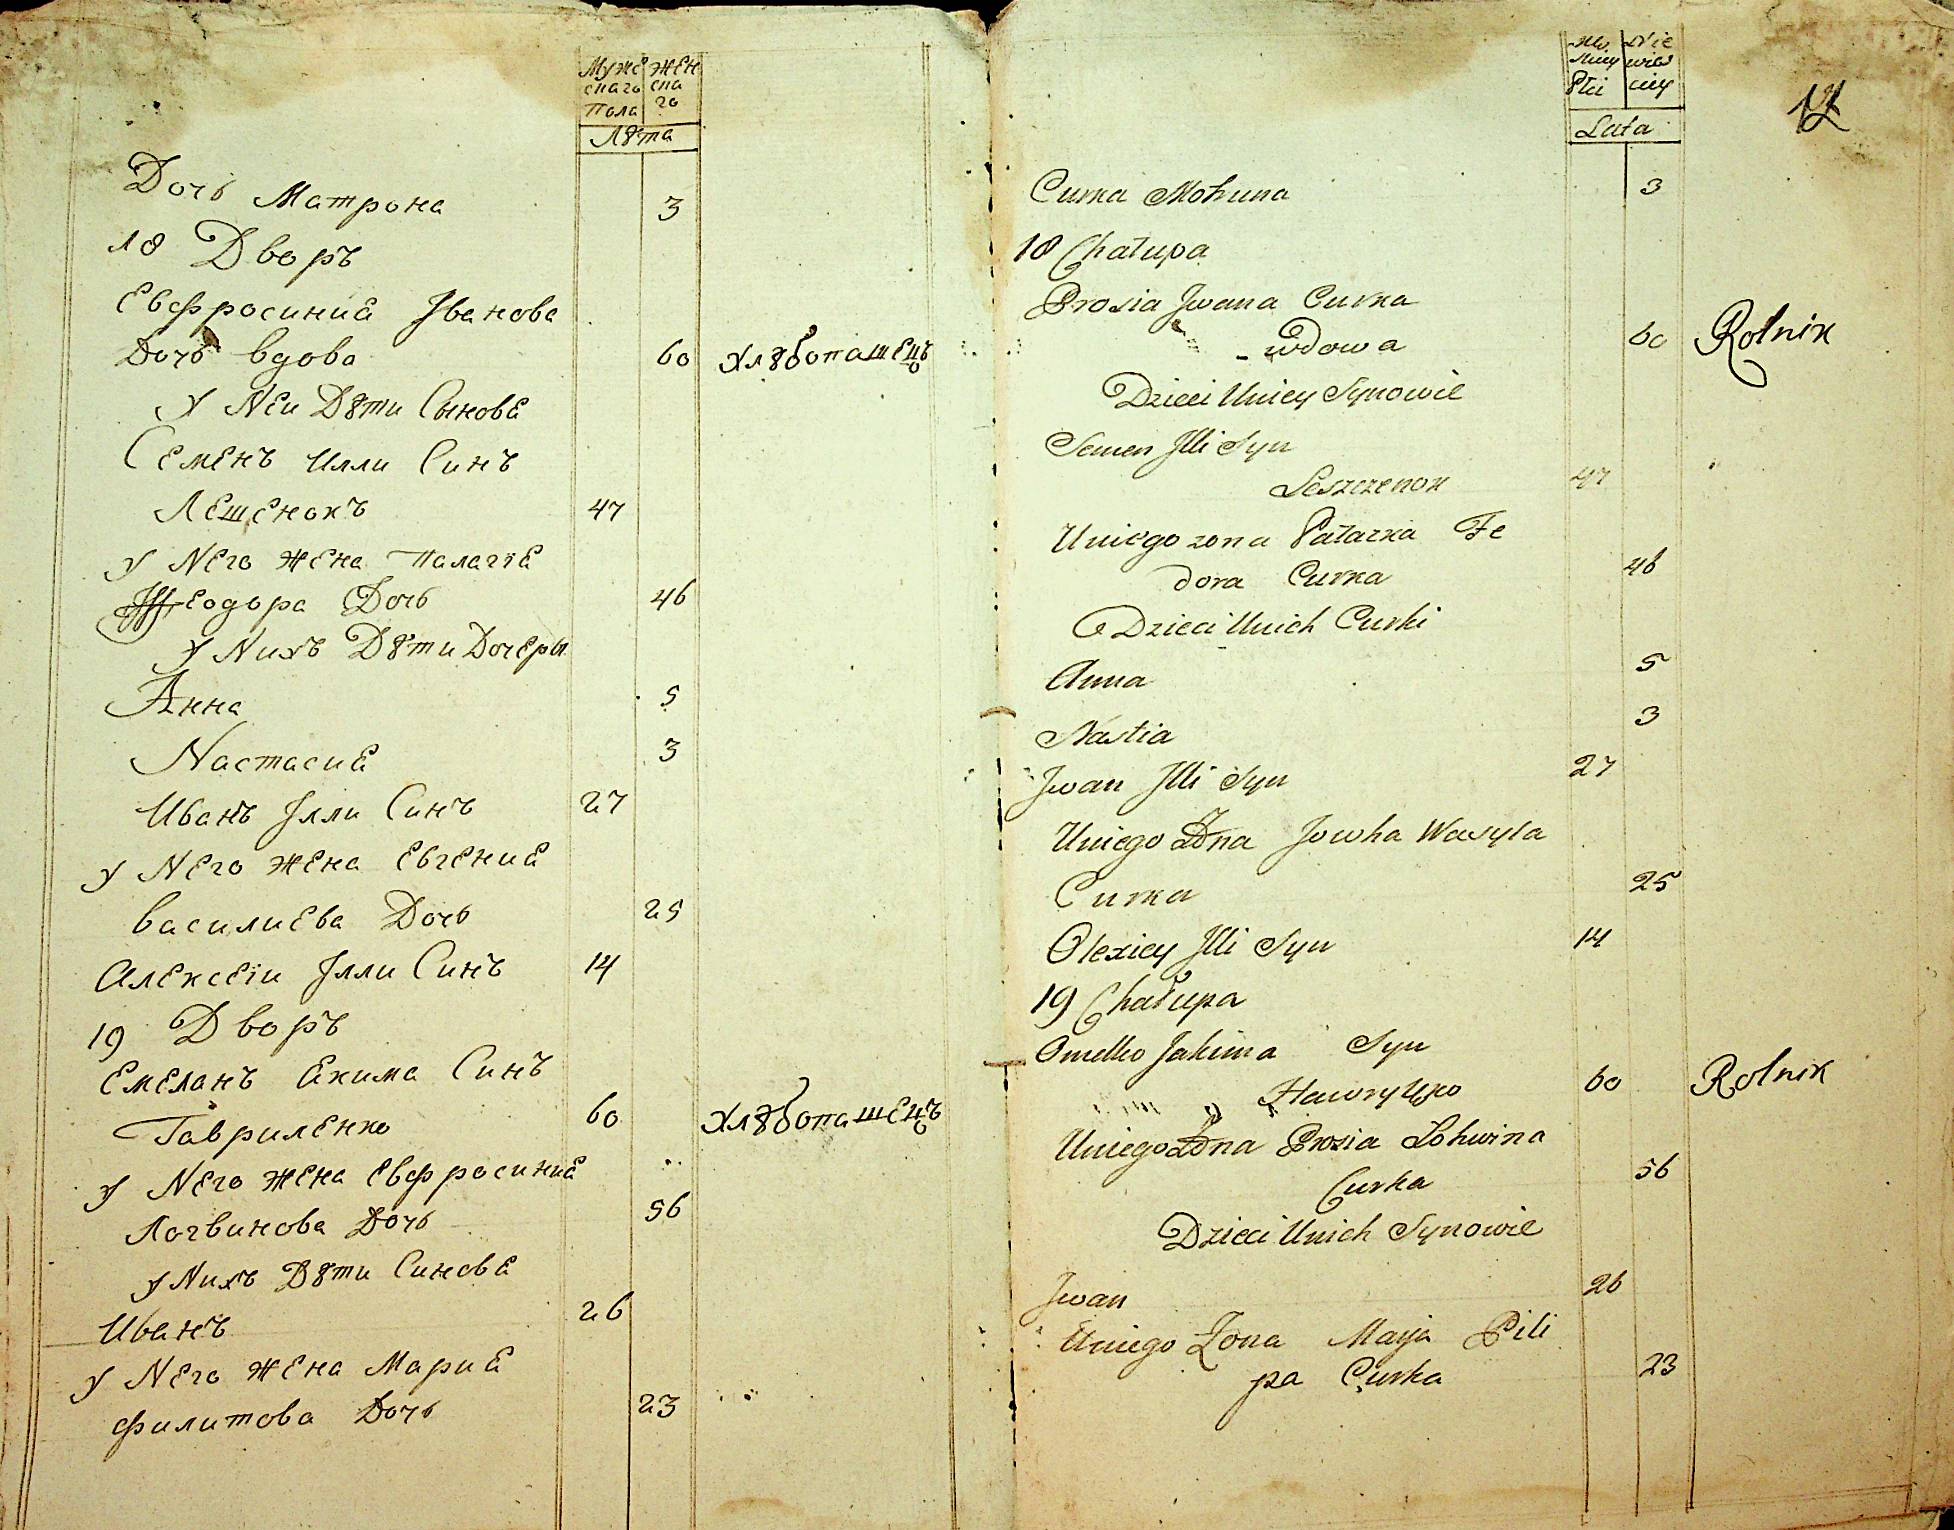 Мужε жен
скаго ска
Пола го
Лѣта
Дочь Матрона 3
18 Дворъ
Евфросиниа Јванова
Дочь вдова 60 Хлѣбопашецъ
У Неи Дѣти Сынове
Семенъ Илли Синъ
Лешенокъ 47
У Него жена Палагіа
Ѳеодора Дочь 46
У Нихъ Дѣти Дочеры
Анна 5
Настасиа 3
Иванъ Јлли Синъ 27
У Него жена Евгениа
василиева Дочь 25
Алексеіи Јлли Синъ 14
19 Дворъ
Емеланъ Акима Синъ
Гавриленко 60 Хлѣбопашецъ
У Него жена Евфросиниа
Логвинова Дочь 56
У Нихъ Дѣти Синове
Иванъ 26
У Него жена Мариа
Филипова Дочь 23
Płci
Lata
12
Curka Motruna 3
18 Chałupa
Prosia Jwana Curka
wdowa 60 Rolnik
Dzieci Uniey Synowie
Semen Jlli Syn
Leszczenok 47
Uniego zona Pałazka Fe
dora Curka 46
Dzieci Unich Curki
Anna 5
Nastia 3
Jwan Jlli Syn 27
Uniego Zona Jowha Wasyla
Curka 25
Olexiey Jlli Syn 14
19 Chałupa
Omelko Jakima Syn
Hawryłko 60 Rolnik
Uniego Zona Prosia Lohwina
Curka 56
Dzieci Unich Synowie
Jwan 26
Uniego Zona Marja Pili
pa Curka 23